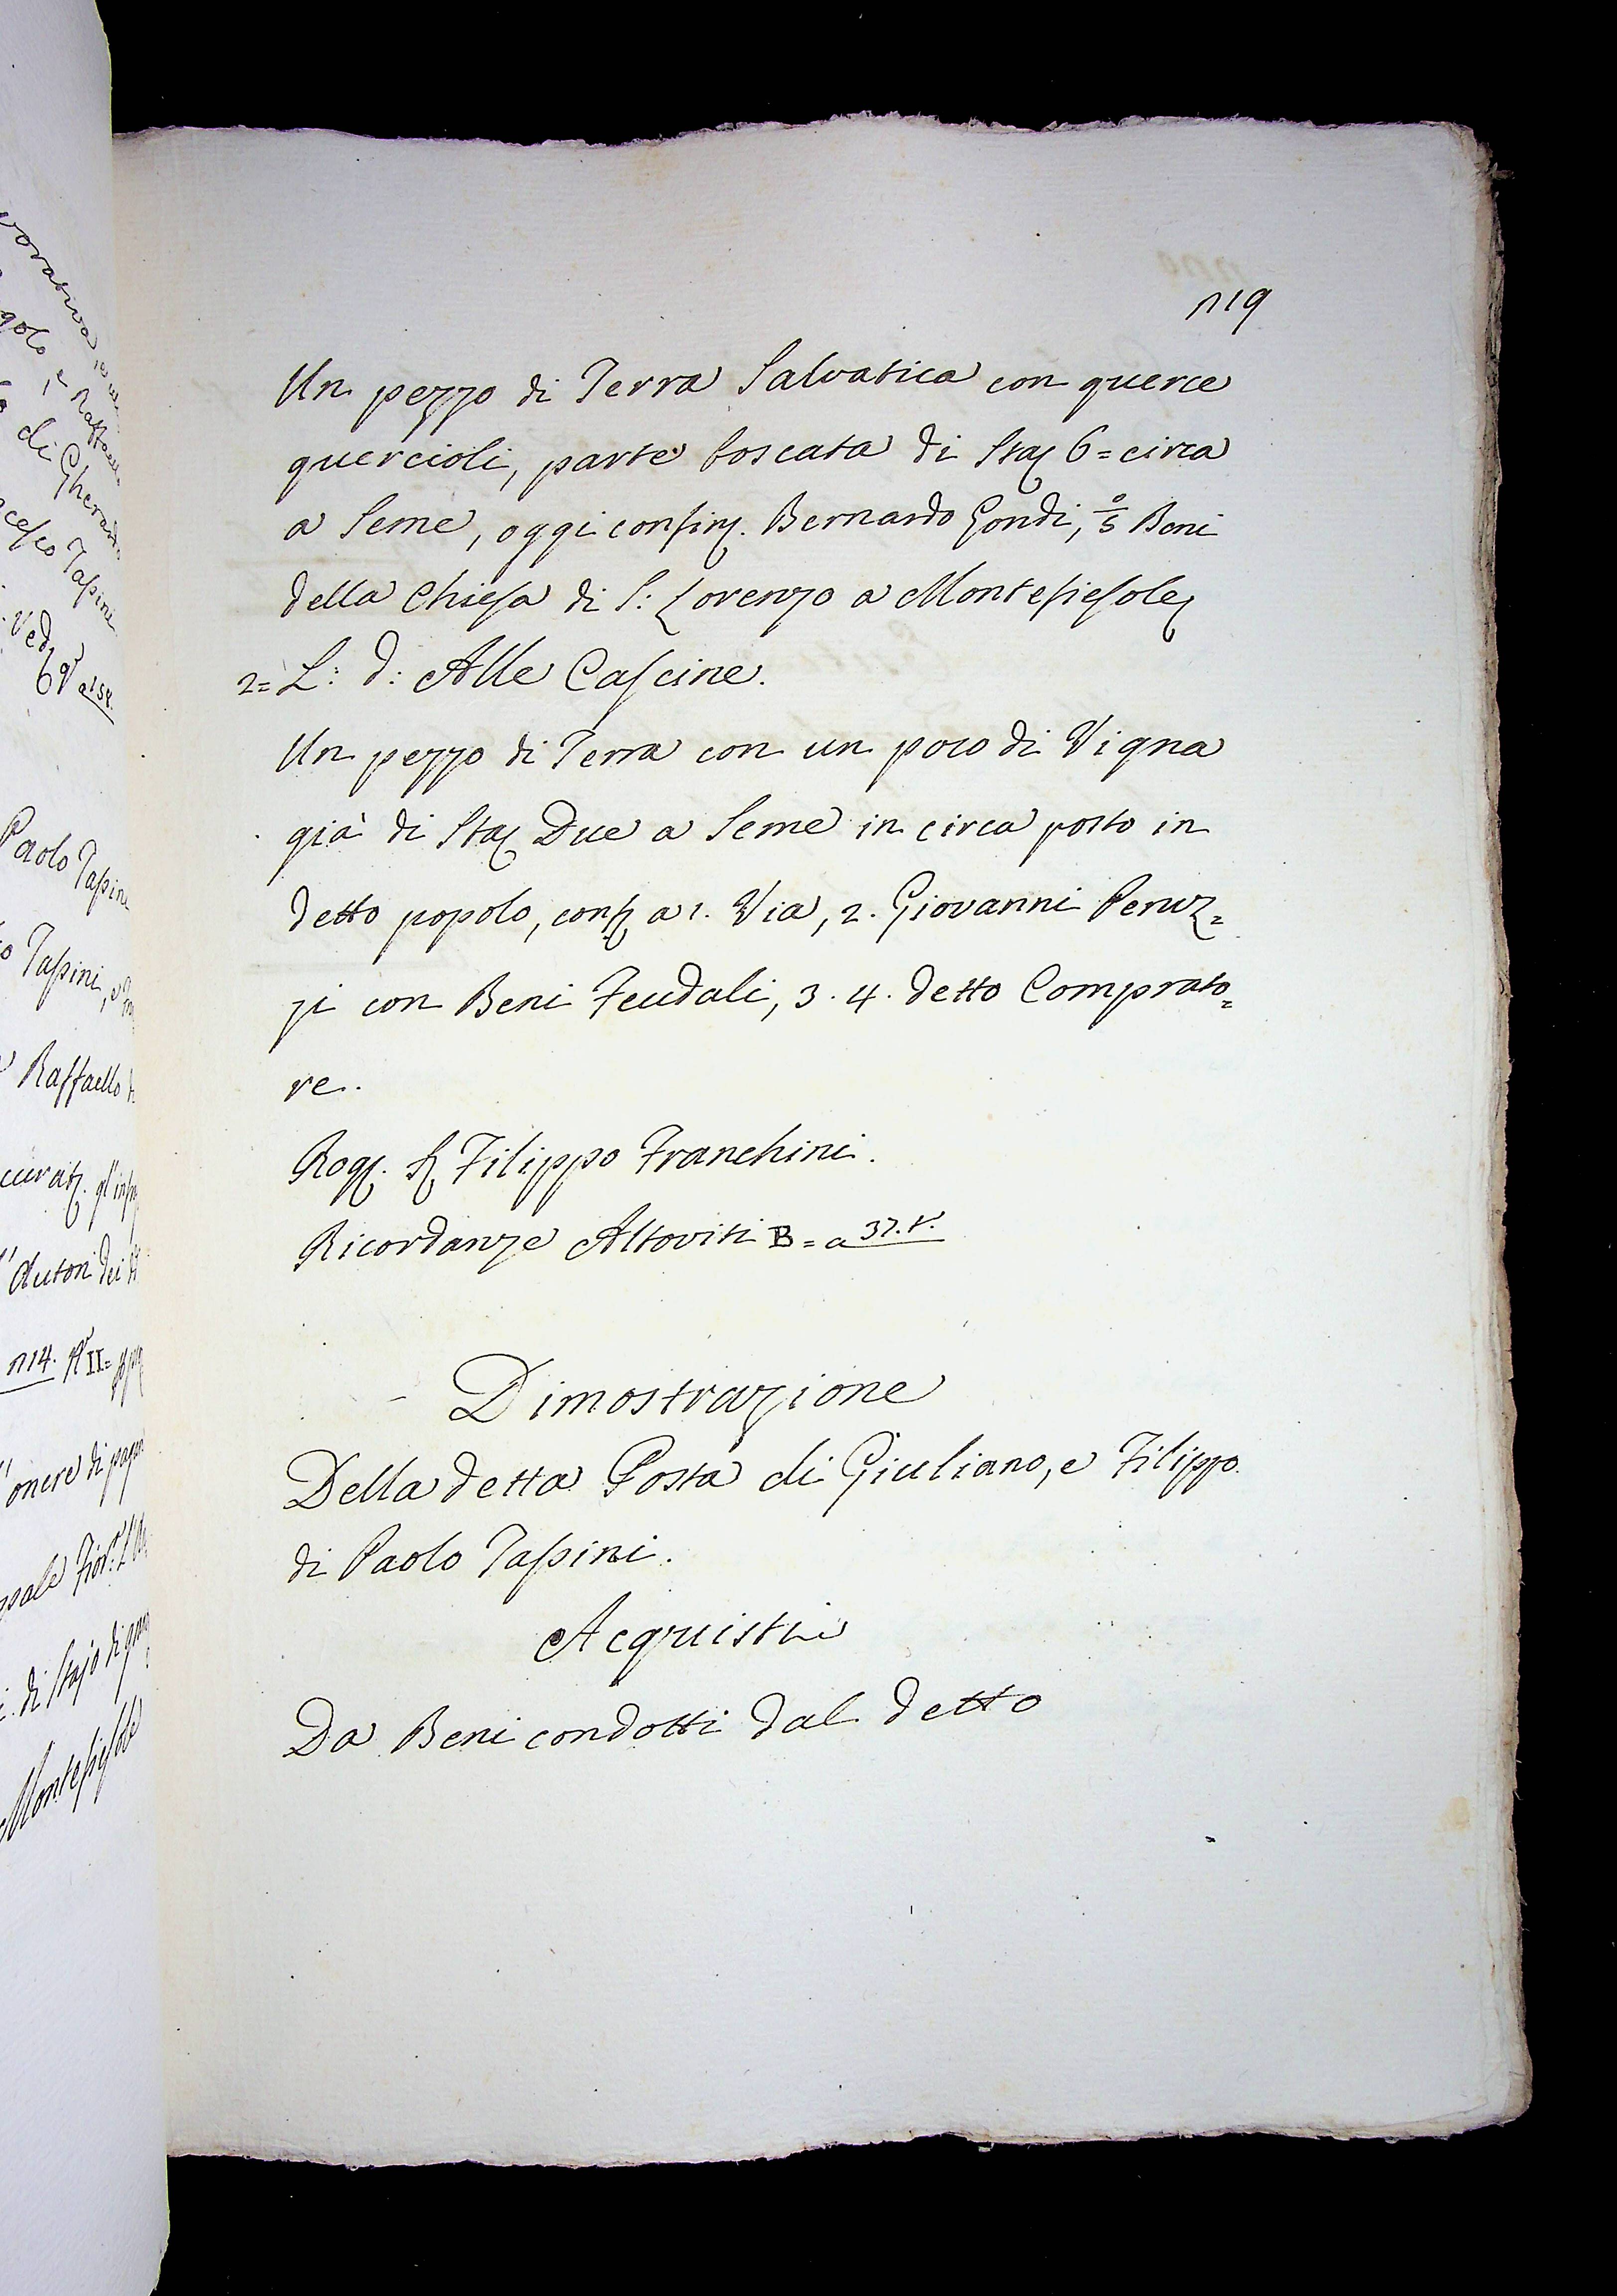 n19
Un pezzo di Terra Salvatica con querce
quercioli, parte boscata di Sta: 6= circa
a Seme, oggi confin. Bernardo Gondi, 5° Beni
della Chiesa di S: Lorenzo a Montefiesole
2= L: d: Alle Cascine.
Un pezzo di Terra con un poco di Vigna
già di Sta: Due a Seme in circa posto in
detto popolo, conf: a 1. Via, 2. Giovanni Peruz=
zi con Beni Feudali, 3. 4. detto Comprato=
re.
Rog: S: Filippo Franchini.
Ricordanze Altoviti B = a 37. t.
Dimostrazione
Della detta Posta di Giuliano, e Filippo
di Paolo Tassini.
Acquisti
Da Beni condotti dal detto
Paolo Tassini
Tassini, e
Raffaello
Autori dei
n14. II=
onere di
di Stajo di
Montefiesole